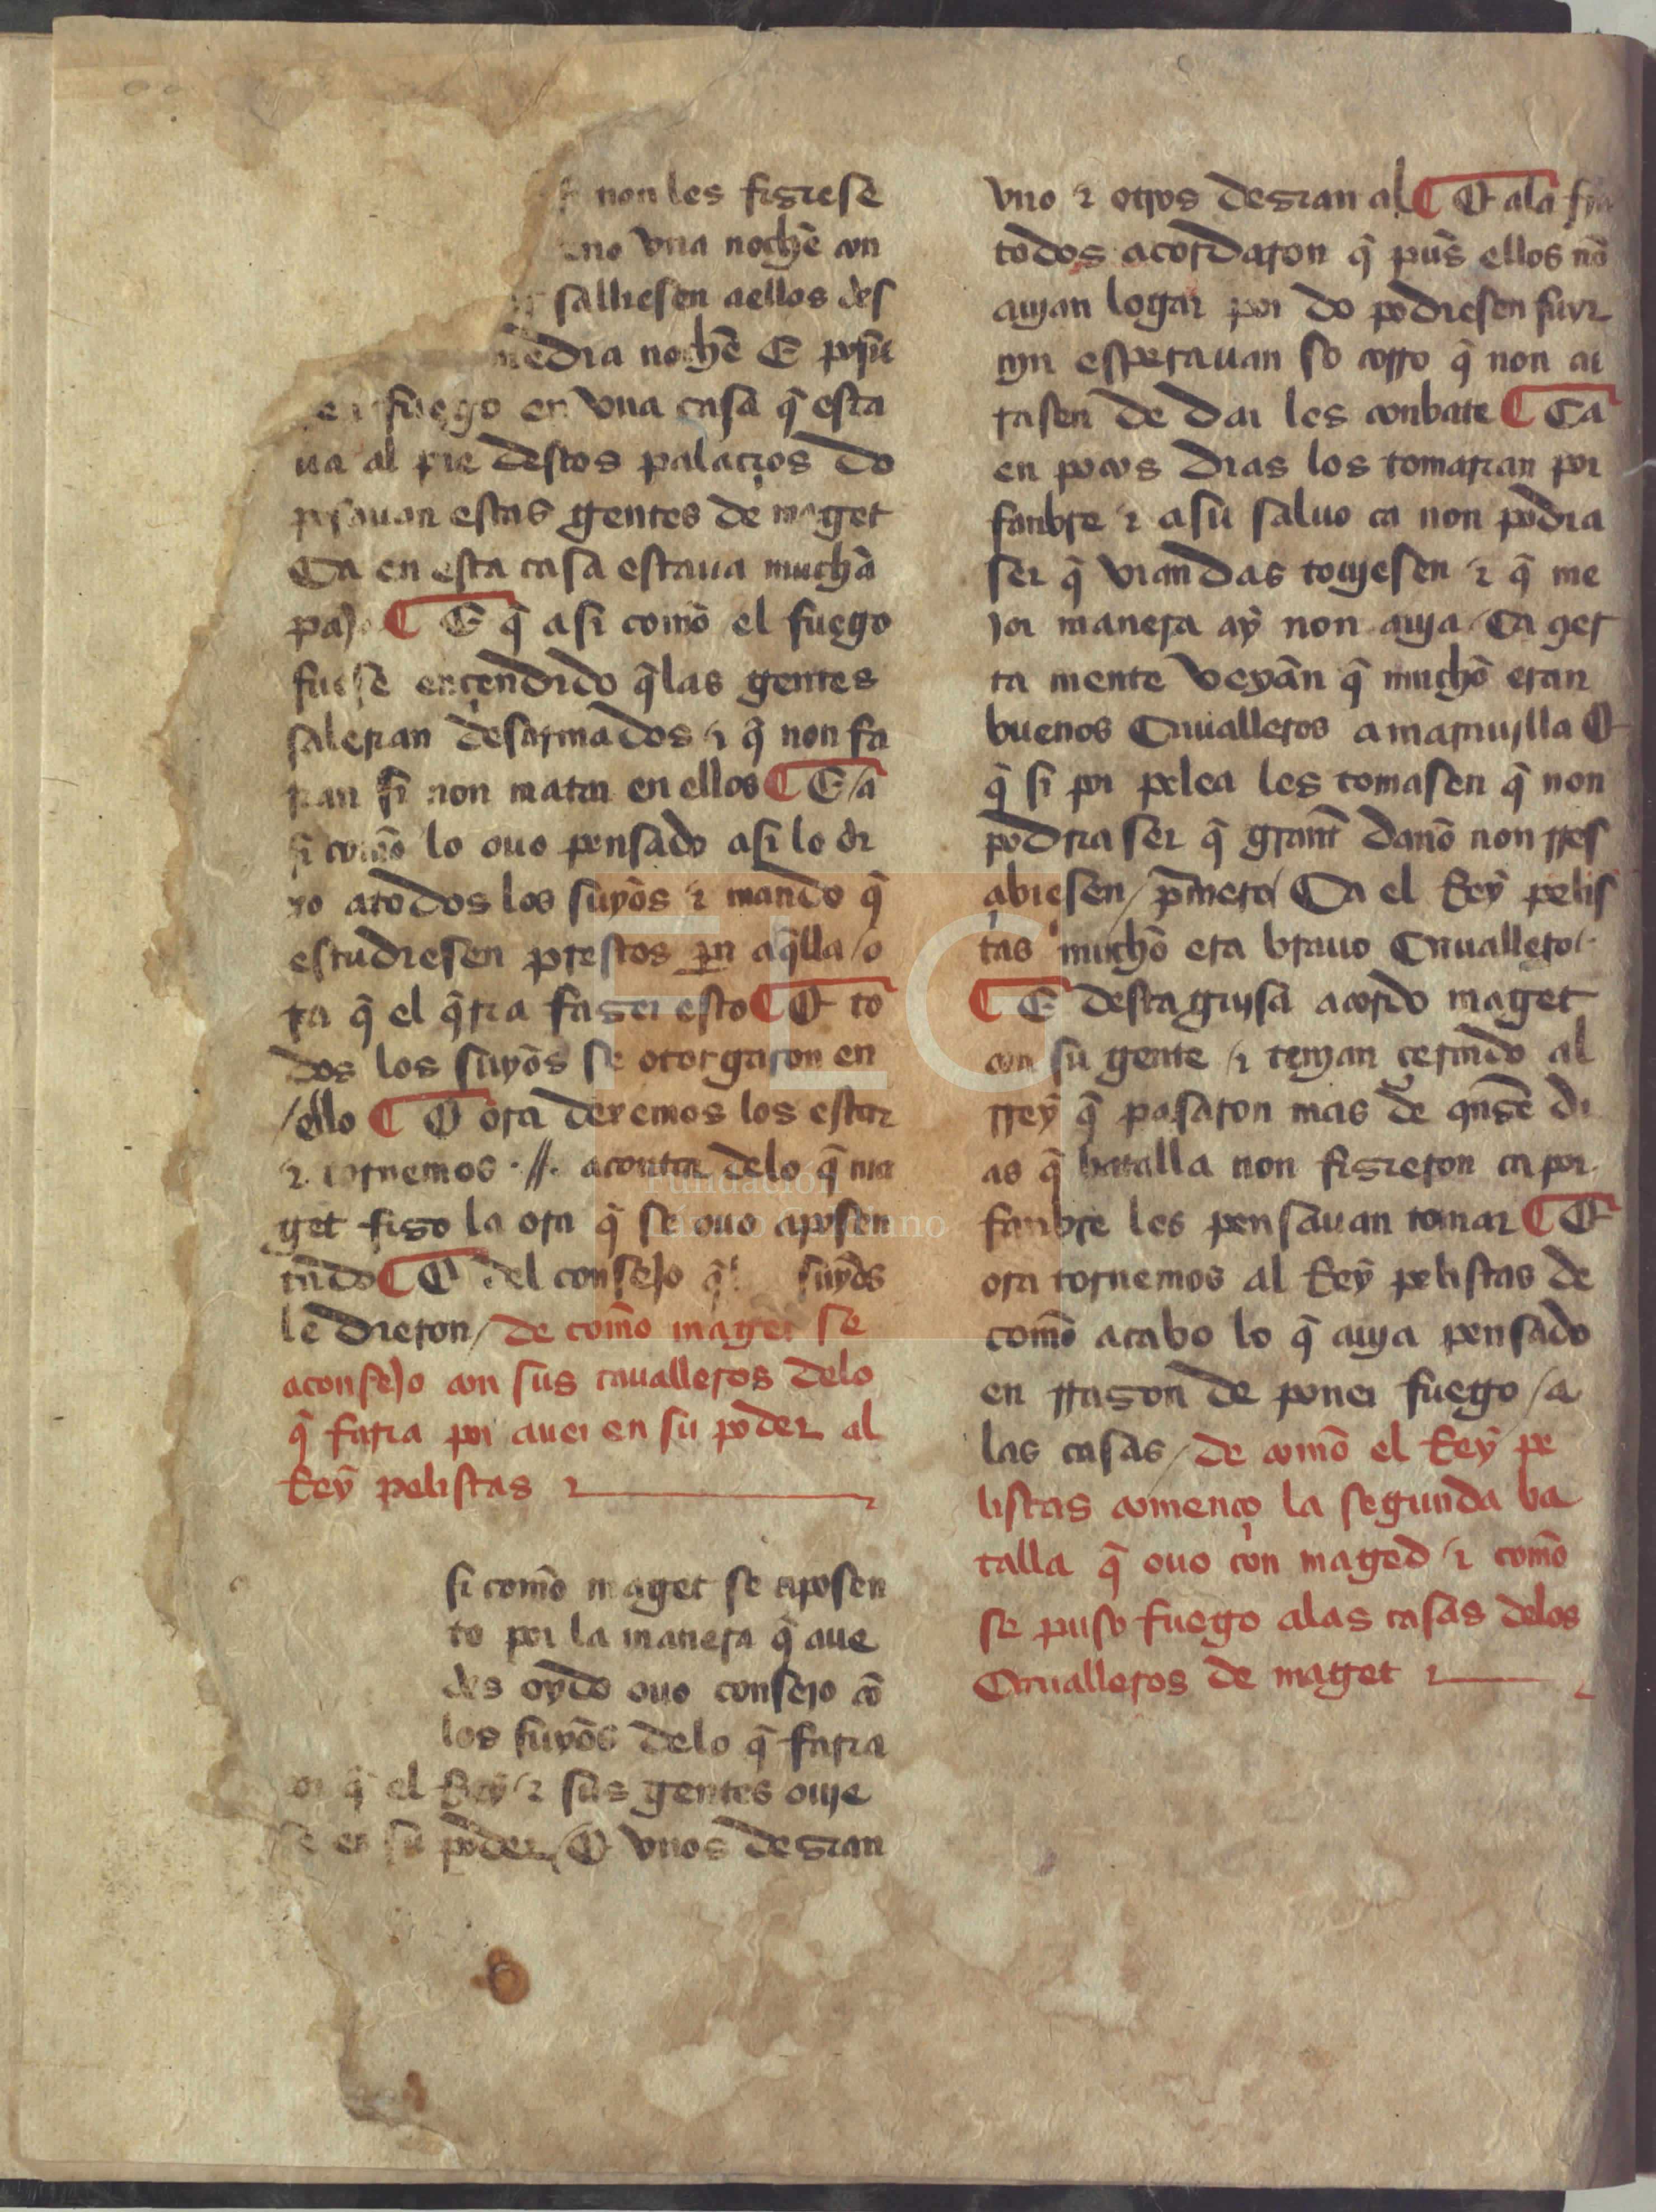 non les fisiese
una noche con
salliesen aellos des
media noche E pusiē
fuego en vna casa q̃ esta
ua al pie destos palaçios do
posauan estas gentes de maget
Ca en esta casa estaua muchā
paja ¶ E q̃ asi comō el fuego
fuese ençendido q̃las gentes
saleran desarmados ⁊ q̃ non fa
rian si non matar en ellos ¶ E / a
si comō lo ouo pensado asi lo di
xo atodos los suyōs ⁊ mando q̃
estudiesen prestos pa aq̃lla / o
ra q̃ el q̃ria faser esto ¶ E to
dos los suyōs se otorgaron en
/ ello ¶ E ora dexemos los estar
⁊ tornemos ·//· acontar delo q̃ ma
get fiso la ora q̃ se ouo aposen
tado ¶ E del consejo q̃ suyōs
le dieron / de comō maget se
aconsejo con sus caualleros delo
q̃ faria por auer en su poder al
Rey pelistas ⁊
si comō maget se aposen
to por la manera q̃ aue
des oydo ouo consejo cō
los suyōs delo q̃ faria
q̃ el Rey ⁊ sus gentes ouie
se en su poder / E vnos desian
vno ⁊ otros desian al ¶ E ala fin
todos acordaron q̃ pues ellos nō
auian logar por do podiesen fuyr
nin esperauan so corro q̃ non cu
rasen de dar les conbate ¶ Ca
en pocos dias los tomarian por
fanbre ⁊ asu saluo ca non podia
ser q̃ viandas touiesen ⁊ q̃ me
jor manera ay non auia / Ca çer
ta mente veyan q̃ muchō eran
buenos Caualleros a marauilla E
q̃ si por pelea les tomasen q̃ non
podria ser q̃ grant danō non rres
çbiesen / p̃mero / Ca el Rey pelis
tas muchō era brauo Cauallero
¶ E desta guisa acordo maget
con su gente ⁊ tenian çercado al
rrey q̃ pasaron mas de quinse di
as q̃ batalla non fisieron ca por
fanbre les pensauan tomar ¶ E
ora tornemos al Rey pelistas de
comō acabo lo q̃ auia pensado
en rrason de poner fuego / a
las casas / de comō el Rey pe
listas començo la segunda ba
talla q̃ ouo con maged ⁊ comō
se puso fuego alas casas delos
Caualleros de maget ⁊